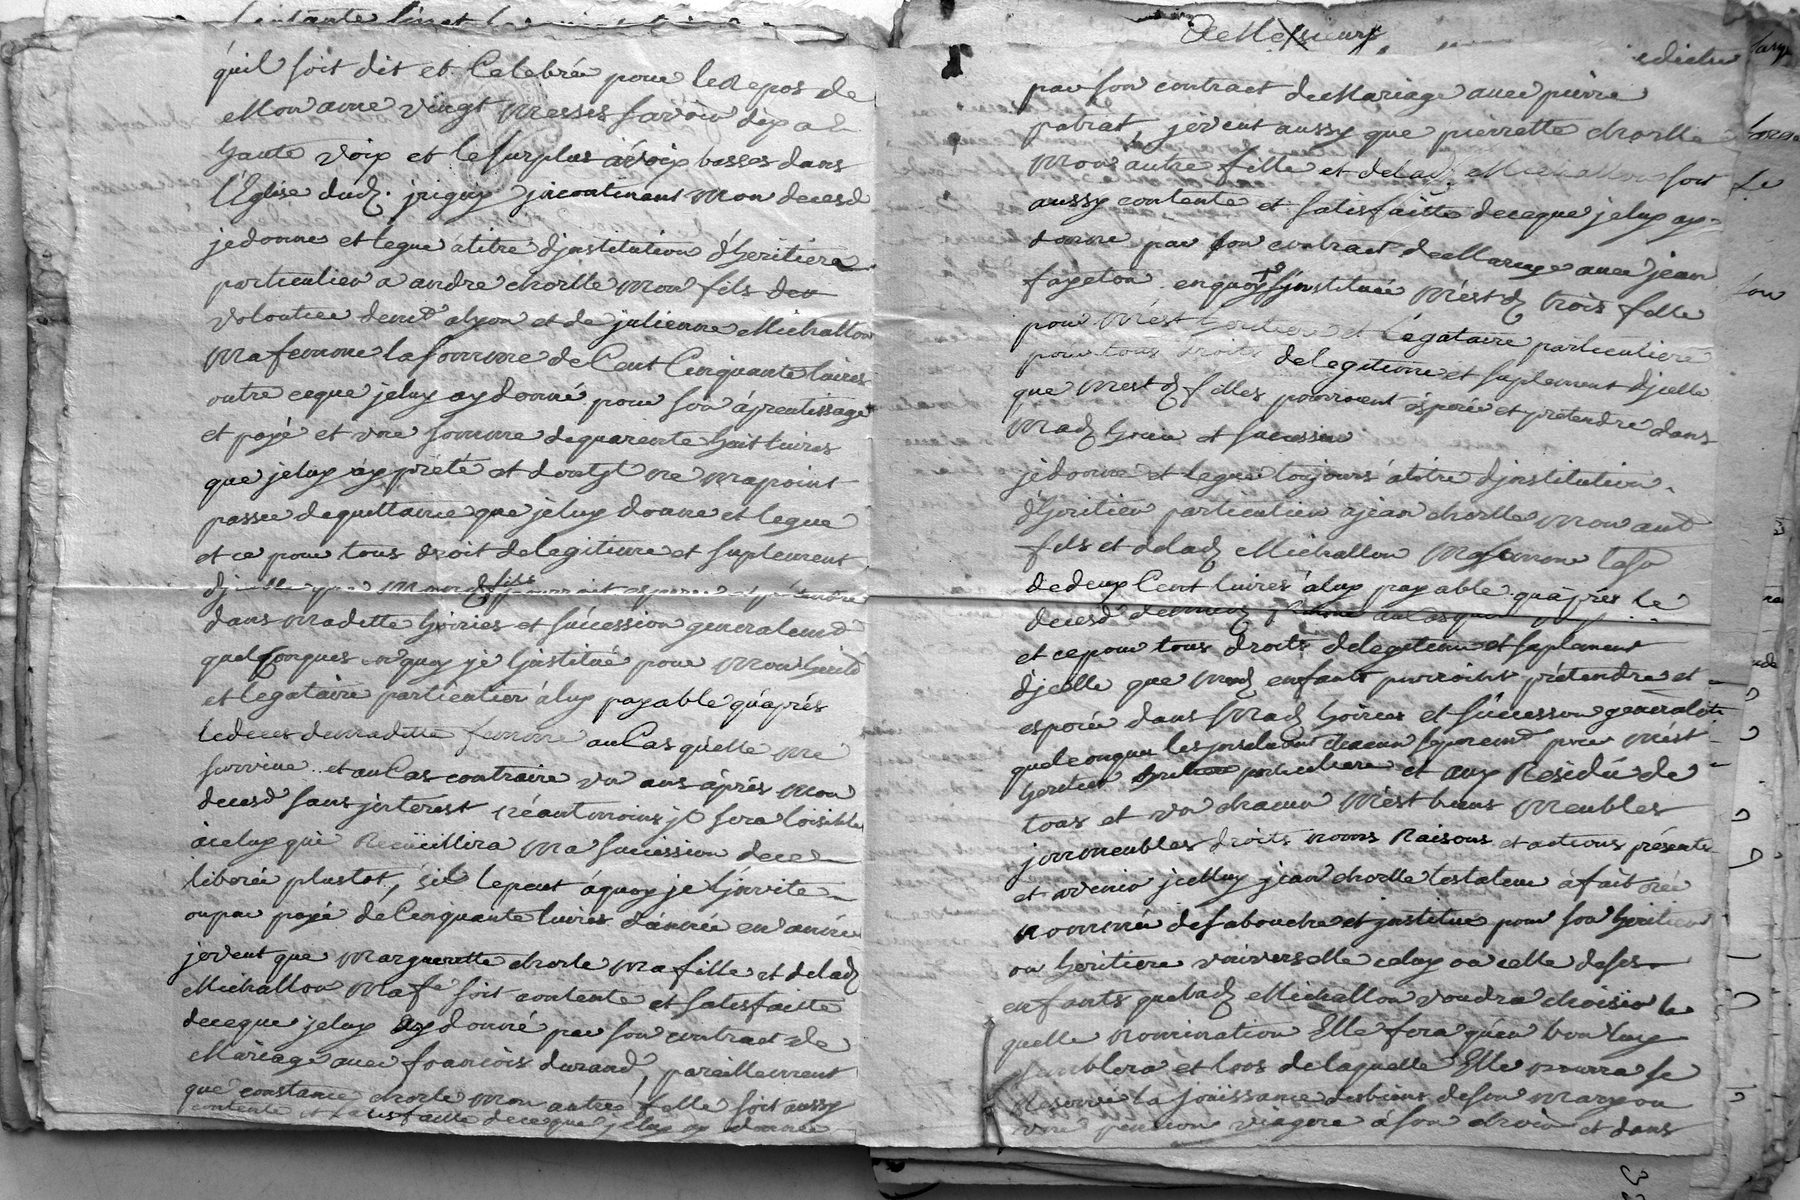 qúil soit dit et Celebrée pour le Repos de
Mon ame vingt Messes savoir dix a
haute voix et le surplus a voix basses dans
l'Eglise dud. jrigny jncontinant mon decesd
je donne et legue a titre d'jnstitution d'heritiere
particulier a andré chorlle mon fils
demt alyon et de julienne Michallon
ma femme la somme de Cent Cinquante livres
outre ceque je luy ay donné pour son áprentissage
et payé et une somme de quarente huit livres
que je luy ay prété et dont jl ne ma point
passée de quittance que je luy donne et legue
et ce pour tous droit de legitime et suplement
djcelle que mond fils pourrait esperer et prétendre
dans madette hoiries et súcession generalemt
quelconques en quoy je l'jnstitué pour mon herit
et legataire particulier a luy payable qúaprés
le deces de madette femme au Cas qúelle me
survive et au Cas contraire un ans áprés mon
decesd sans jnterest néantmoins jl sera loisible
a celuy qui Recüeillira ma sucession de ce
liberée plustot, sil le peut a quoy je l'jnvite
ou par payé de Cinquante livres dánnée en année
je veut que Marguerette chorle ma fille et delad
Michallon ma fe soit contente et satisfaitte
de ceque je luy ay donné par son contract de
Mariage avec francois durand, pareillement
que constance chorle mon autre fille soit aussy
contente et satisfaitte de ceque je luy ay donnée
A Messieurs
par son contract de Mariage avec pierre
patrat, je veut aussy que pierrette chorlle
mon autre fille et delad. Michallon soit
aussy contente et satisfaitte de ceque je luy ay
donné par son contract de Mariage avec jean
fayeton en quoy j'jnstitué mesd trois fille
pour mes heritier et Légataire particuliere
pour tous droits de legitime et suplement djcelle
que mesd filles pourroient ésperer et prétendre dans
mad hoirie et sucession
je donne et legue toujours a titre d'jnstitution
d'heritier particulier a jean chorlle mon aut
fils et delad Michallon ma femme la so
de deux Cent livres a luy payable qúaprés le
decesd de
et ce pour tous droits de legitime et suplement
djcelle que mesd enfants pourroint prétendre et
esperée dans mad hoiries et súcession generalité
quelconques les jnstituant chacun séparemt pour mes
heritier particuliere et aux Residú de
tous et un chacun mes biens meubles
jmmeubles droits noms Raisons et actions présents
et avenir jcelluy jean chorlle testateur a fait crée
nommé de sa bouche et jnstitue pour son heritier
ou heritiere universelle celuy ou celle de ses
enfants que lad Michallon voudra choisir la
quelle nomination Elle fera qúan bon luy
semblera et lors de laquelle Elle pourra se
Reservé la joüissance des biens de son mary ou
une pension viagere a son choix et dans